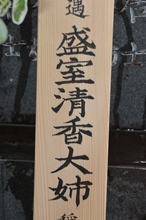 遇盛室清香大姉